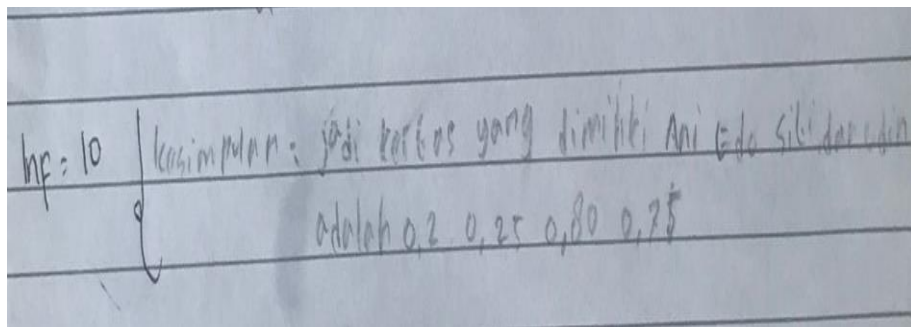 hf = 10 kesimpulan : jadi kertas yang dimiliki Ani Edo siti dan udin
adalah 0,2 0,25 0,80 0,75